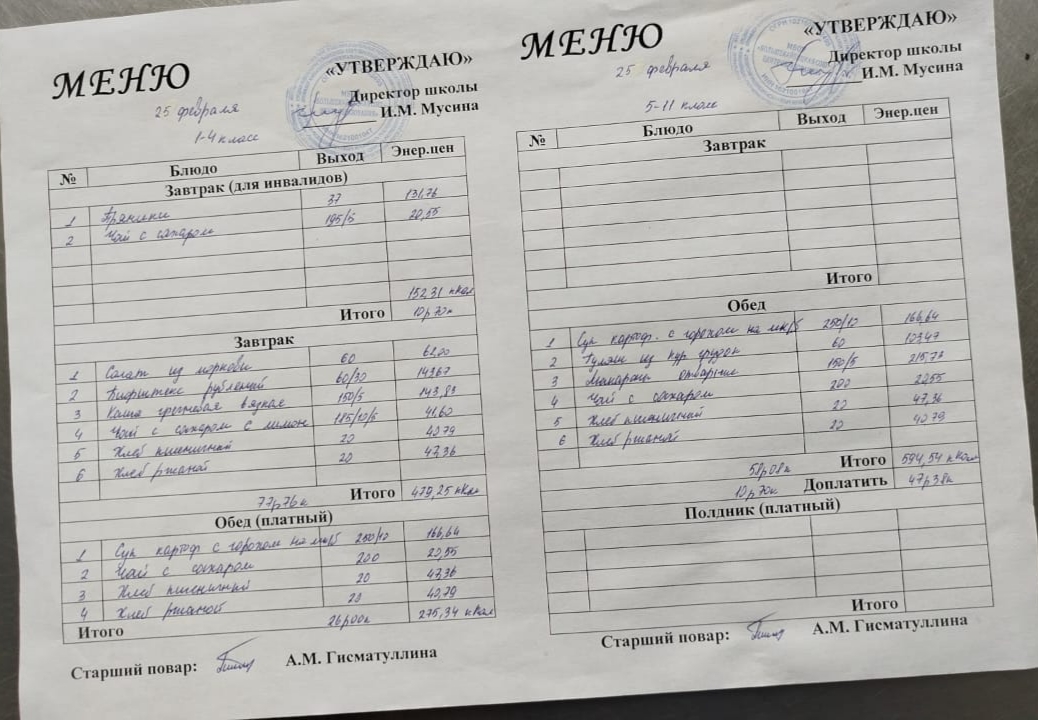 МЕНЮ
«УТВЕРЖДАЮ»
Директор школы
И.М. Мусина
25 февраля
1-4 класс
№ Блюдо Выход Энер.цен
Завтрак (для инвалидов)
1 Пряники 37 131,76
2 Чай с сахаром 195/5 20,55
152,31 кКал
Итого 10р70к
Завтрак
1 Салат из моркови 60 62,00
2 Бифштекс рубленый 60/30 143,67
3 Каша гречневая вязкая 150/5 143,83
4 Чай с сахаром с лимон 185/10/5 41,60
5 Хлеб пшеничный 20 40,79
6 Хлеб ржаной 20 47,36
77р76к Итого 479,25 кКал
Обед (платный)
1 Суп картоф с горохом на мк/б 250/10 166,64
2 Чай с сахаром 200 20,55
3 Хлеб пшеничный 20 47,36
4 Хлеб ржаной 20 40,79
Итого 26р00к 275,34 кКал
Старший повар: А.М. Гисматуллина
МЕНЮ
«УТВЕРЖДАЮ»
Директор школы
И.М. Мусина
25 февраля
5-11 класс
№ Блюдо Выход Энер.цен
Завтрак
Итого
Обед
1 Суп картоф. с горохом на мк/б 250/10 166,64
2 Гуляш из кур грудок 60 103,47
3 Макароны отварные 150/5 215,73
4 Чай с сахаром 200 20,55
5 Хлеб пшеничный 20 47,36
6 Хлеб ржаной 20 40,79
58р08к Итого 594,54 кКал
10р70к Доплатить 47р38к
Полдник (платный)
Итого
Старший повар: А.М. Гисматуллина